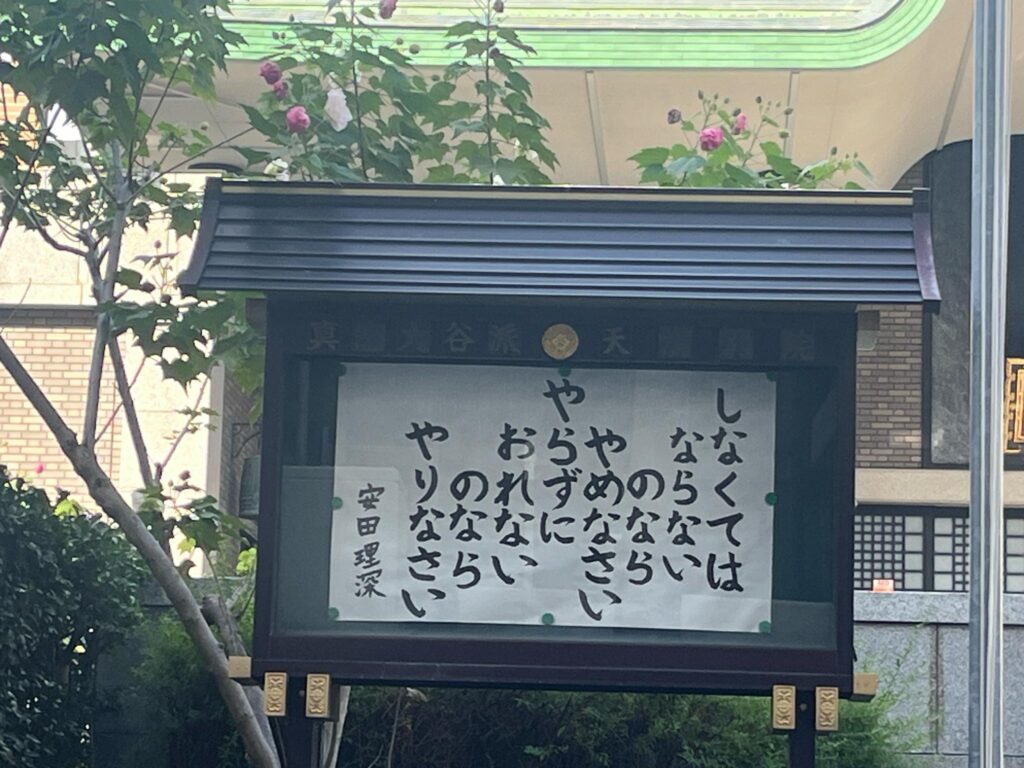 真 大谷派 天 院
しなくては
ならない
のなら
やめなさい
やらずに
おれない
のなら
やりなさい
安田理深